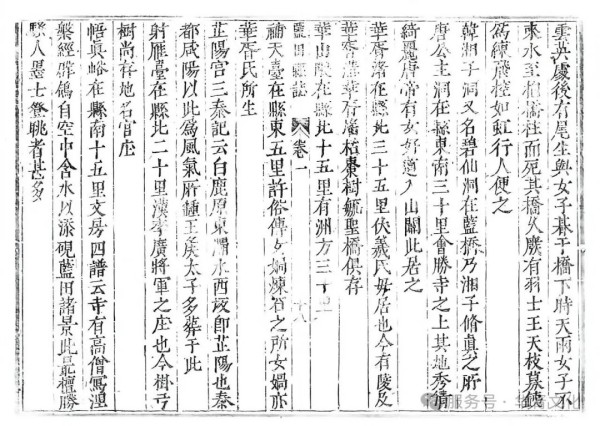 雲英處後有尾生與女子暮于橋下時天雨女子不
來水至抱橋柱而死其橋久廢有羽士王天枝募鐵
為練飛控如虹行人便之
韓湘子洞又名碧仙洞在藍橋乃湘子脩真之所
唐公主洞在縣東南三十里會勝寺之上其地秀倩
綺麗唐帝有女好道入山闢此居之
華胥渚在縣北三十五里伏羲氏母居也今有陵及
華胥溝華胥窰植棗樹毓聖橋俱存
華山陵在縣北十五里有洲方三十里
藍田縣誌 卷一 十八
補天臺在縣東五里許俗傳女媧煉石之所女媧亦
華胥氏所生
芷陽宮三秦記云白鹿原東灞水西坂即芷陽也秦
都咸陽以此為風氣所鍾王侯太子多葬于此
射雁臺在縣北二十里漢李廣將軍之庄也今掛弓
樹尚存地名官庄
悟真峪在縣南十五里文房四譜云寺有高僧寫涅
槃經群鴿自空中含水以添硯藍田諸景此最擅勝
騷人墨士登眺者甚多
服务号